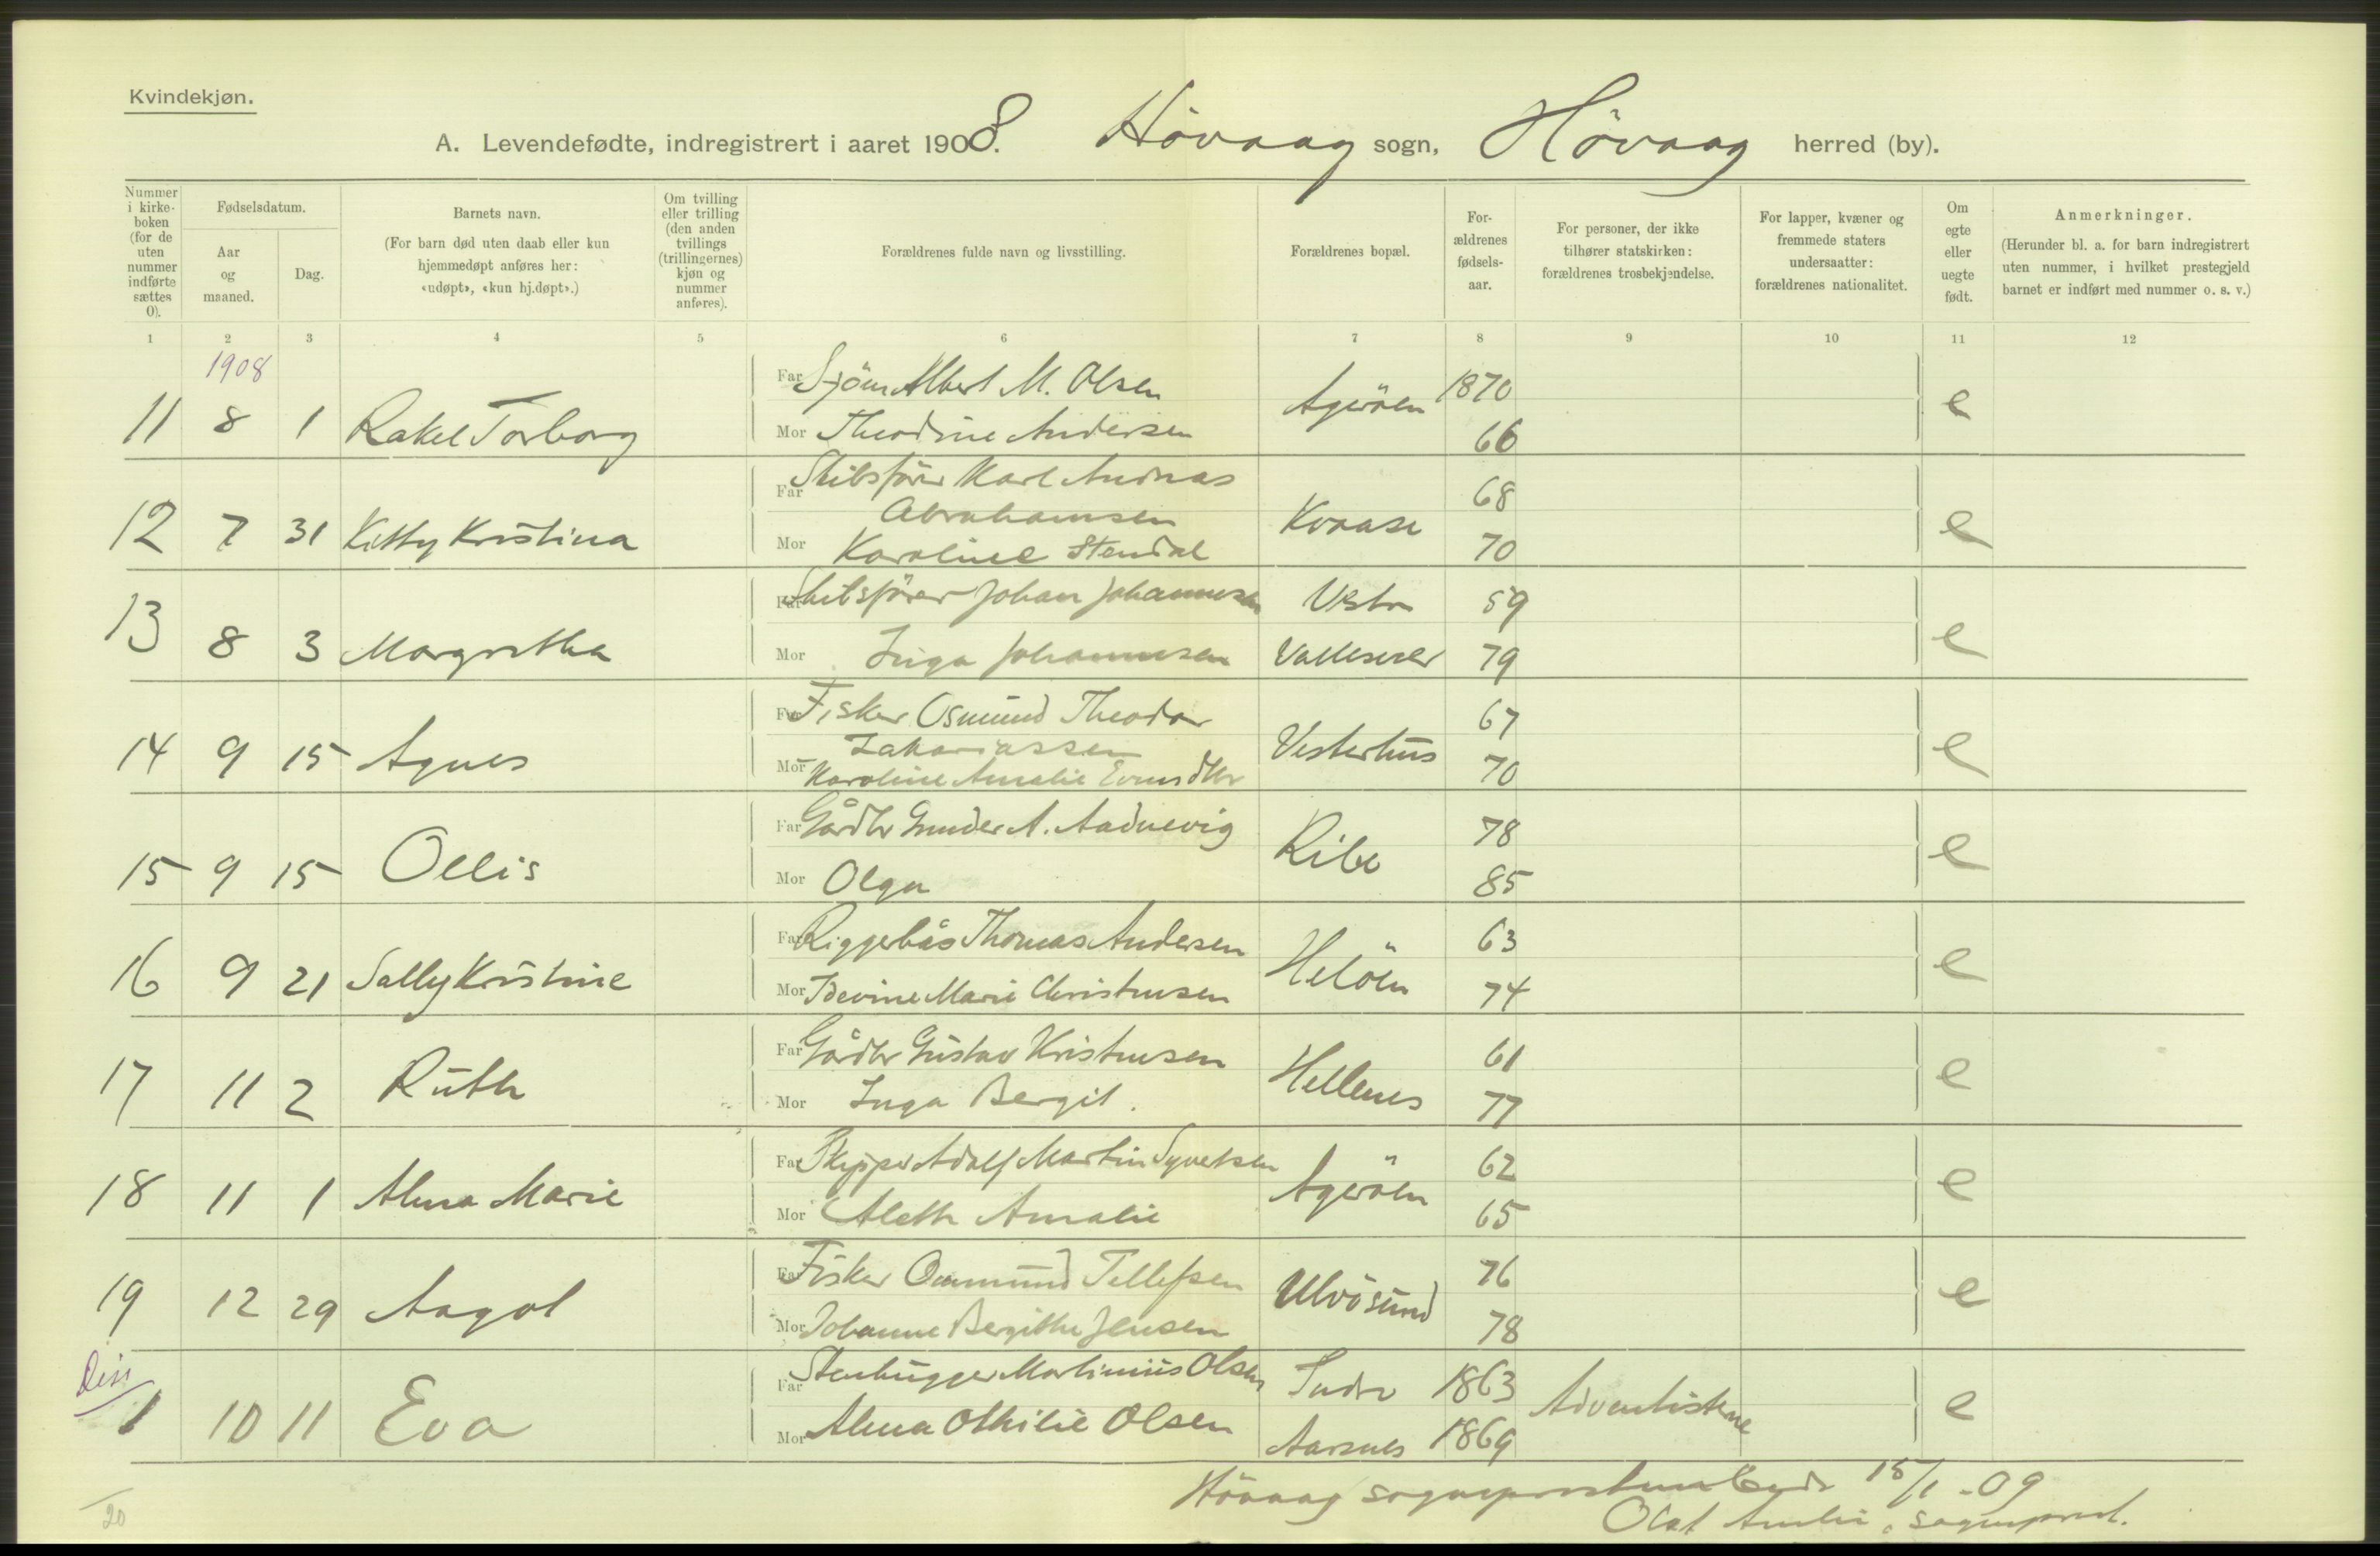 Kvindekjøn.
A. Levendefødte, indregistrert i aaret 1908. Hövaag sogn, Hövaag herred (by).
Nummer i kirke-boken (for de uten nummer indførte sættes 0).
Fødselsdatum.
Aar og maaned.
Dag.
Barnets navn.
(For barn død uten daab eller kun hjemmedøpt anføres her: «udøpt», «kun hj.døpt».)
Om tvilling eller trilling (den anden tvillings (trillingernes) kjøn og nummer anføres).
Forældrenes fulde navn og livsstilling.
Forældrenes bopæl.
For-ældrenes fødsels-aar.
For personer, der ikke tilhører statskirken: forældrenes trosbekjendelse.
For lapper, kvæner og fremmede staters undersaatter: forældrenes nationalitet.
Om egte eller uegte født.
Anmerkninger.
(Herunder bl. a. for barn indregistrert uten nummer, i hvilket prestegjeld barnet er indført med nummer o. s. v.)
1 2 3 4 5 6 7 8 9 10 11 12
1908
Far Sjöm Albert M. Olsen 1870
11 8 1 Rakel Torborg Ageröen e
Mor Theodine Andersen 66
Far Skibsförer Karl Andreas 68
Abrahamsen
12 7 31 Kitty Kristina Kvaase e
Mor Karoline Stendal 70
Far Skibsförer Johan Johannesen Vestre 59
13 8 3 Margretha e
Mor Inga Johannesen Vallesver 79
Far Fisker Osmund Theodor 67
Zakariassen
14 9 15 Agnes Vesterhus e
Mor Karoline Amalie 70
Far Gårdbr Gunder A. Aadnevig 78
15 9 15 Ollis Ribe e
Mor Olga 85
Far Riggerbås Thomas Andersen 63
16 9 21 Sally Kristine Helöen e
Mor Idevine Marie Christensen 74
Far Gårdbr Gustav Kristensen 61
17 11 2 Ruth Hellenes e
Mor Inga Bergit. 77
Far Skipper Adolf Martin Syvertsen 62
18 11 1 Alma Marie Ageröen e
Mor Aleth Amalie 65
Far Fisker Osmund Tellefsen 76
19 12 29 Aagot Ulvösund e
Mor Johanne Bergithe Jensen 78
Diss
Far Stenhugger Martinius Olsen Indre 1863 Adventisterne
1 10 11 Eva e
Mor Alma Othilie Olsen Aarsnes 1869
Hövaag sogneprestembede 15/1 - 09
20
Olaf sogneprest.